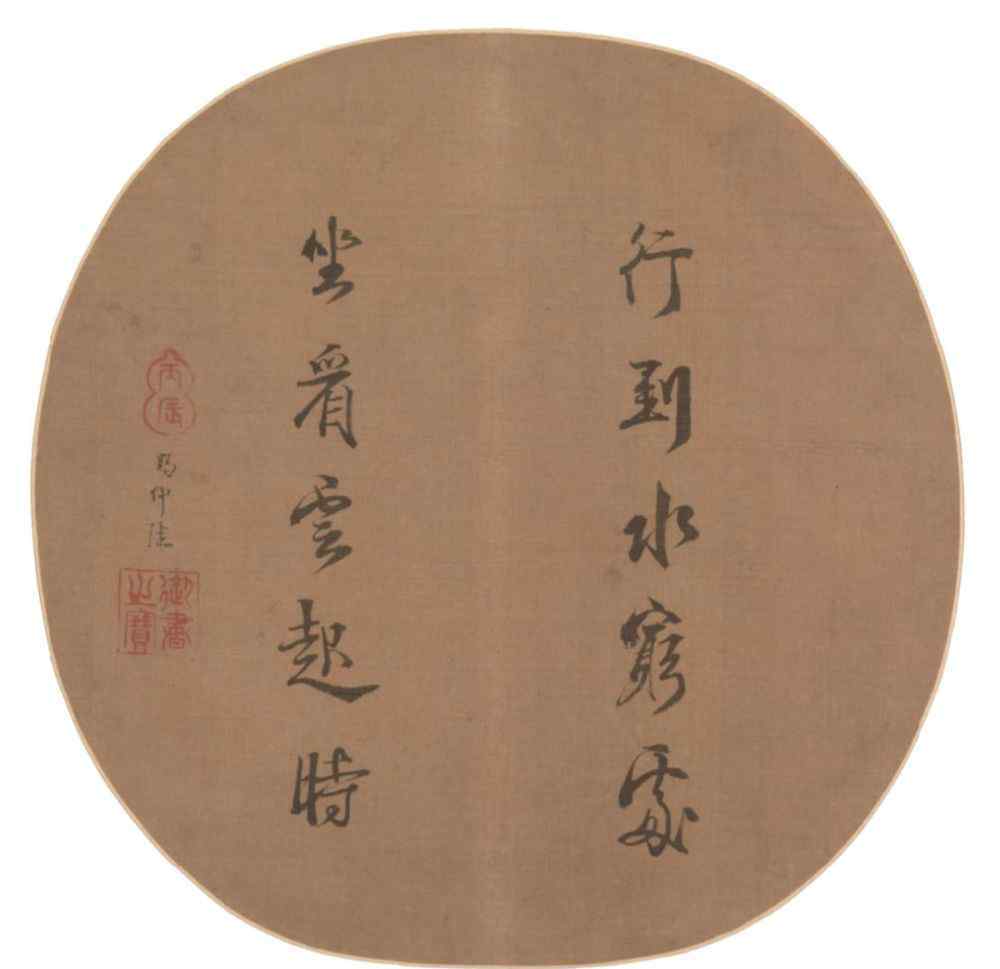 行到水窮處
坐看雲起時
丙辰
賜仲陸
御書之寶